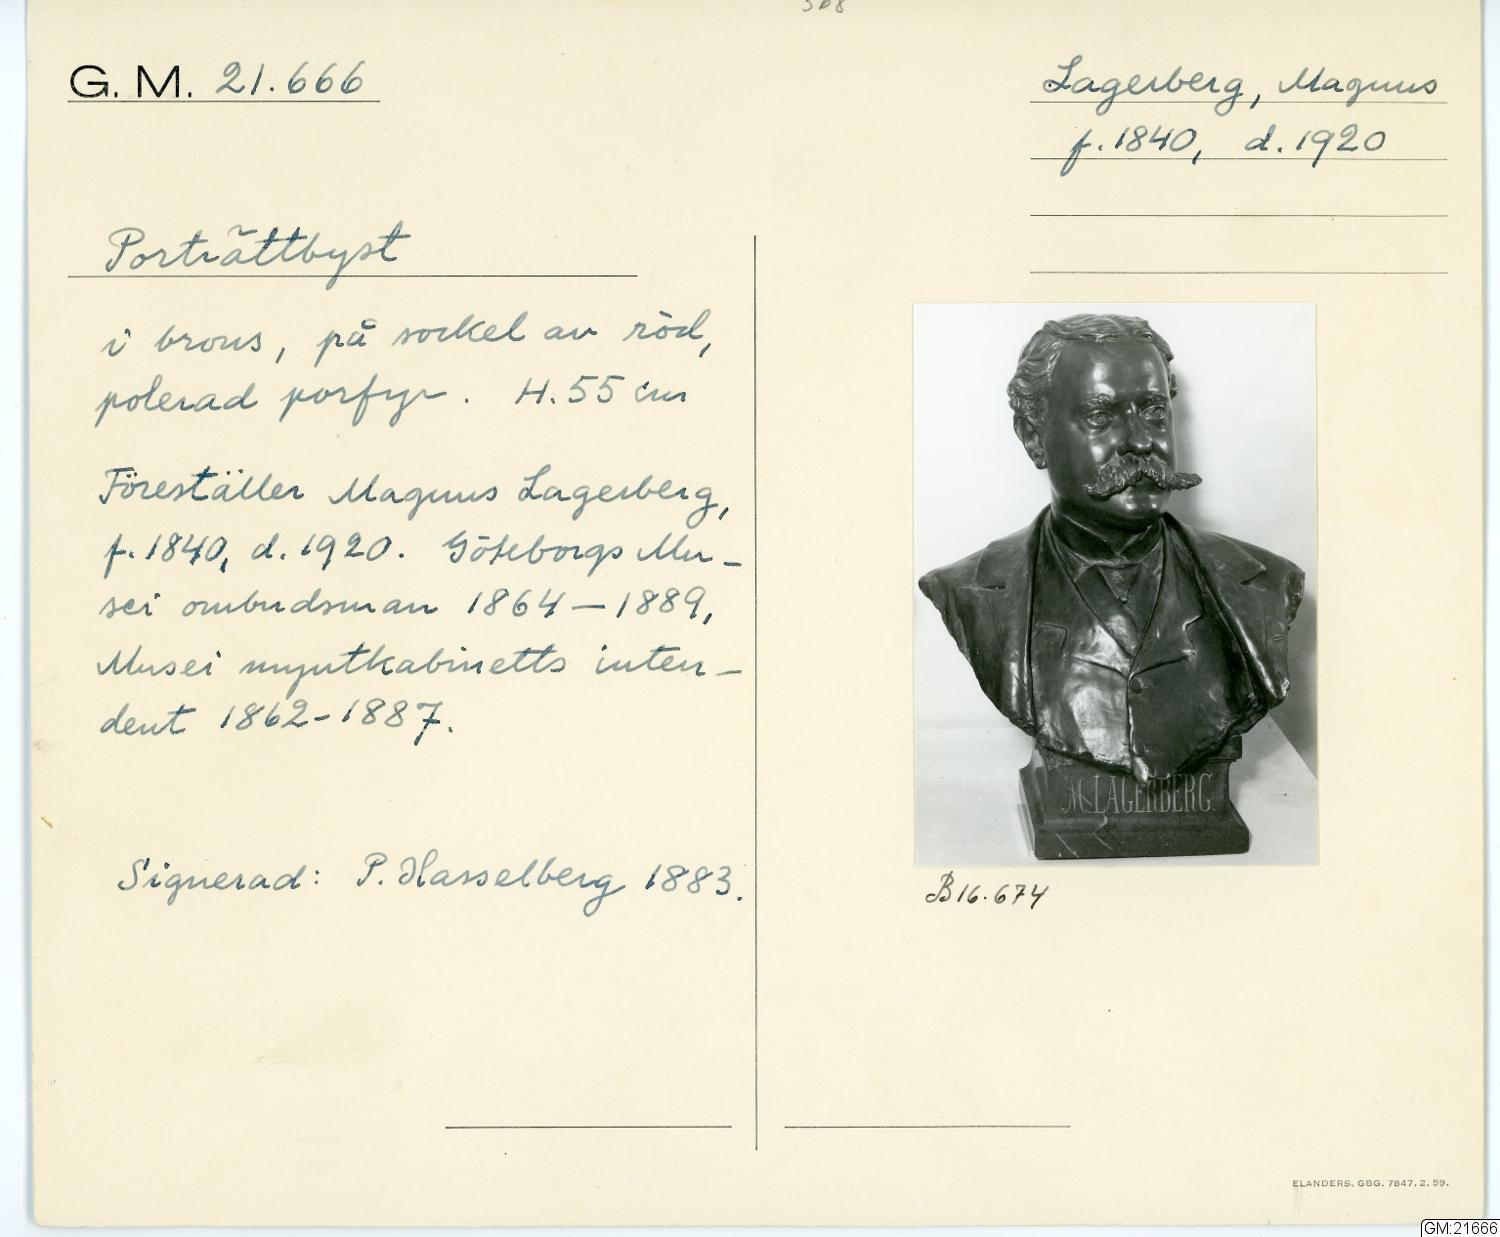 368
G. M. 21.666
Lagerberg, Magnus
f. 1840, d. 1920
Porträttbyst
i brons, på sockel av röd,
polerad porfyr. H. 55 cm
Föreställer Magnus Lagerberg,
f. 1840, d. 1920. Göteborgs Mu-
sei ombudsman 1864-1889,
Musei myntkabinetts inten-
dent 1862-1887.
Signerad: P. Hasselberg 1883.
M. LAGERBERG
B16.674
ELANDERS. GBG. 7847. 2. 59.
GM:21666